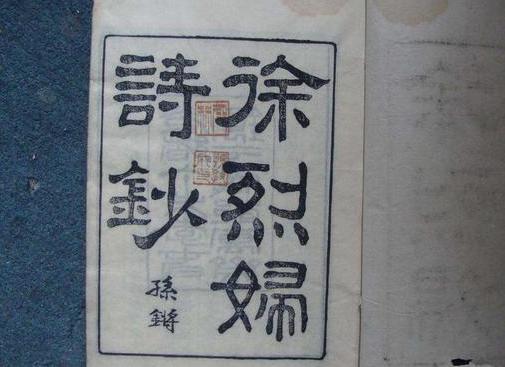 徐烈婦
詩鈔
孫鏘